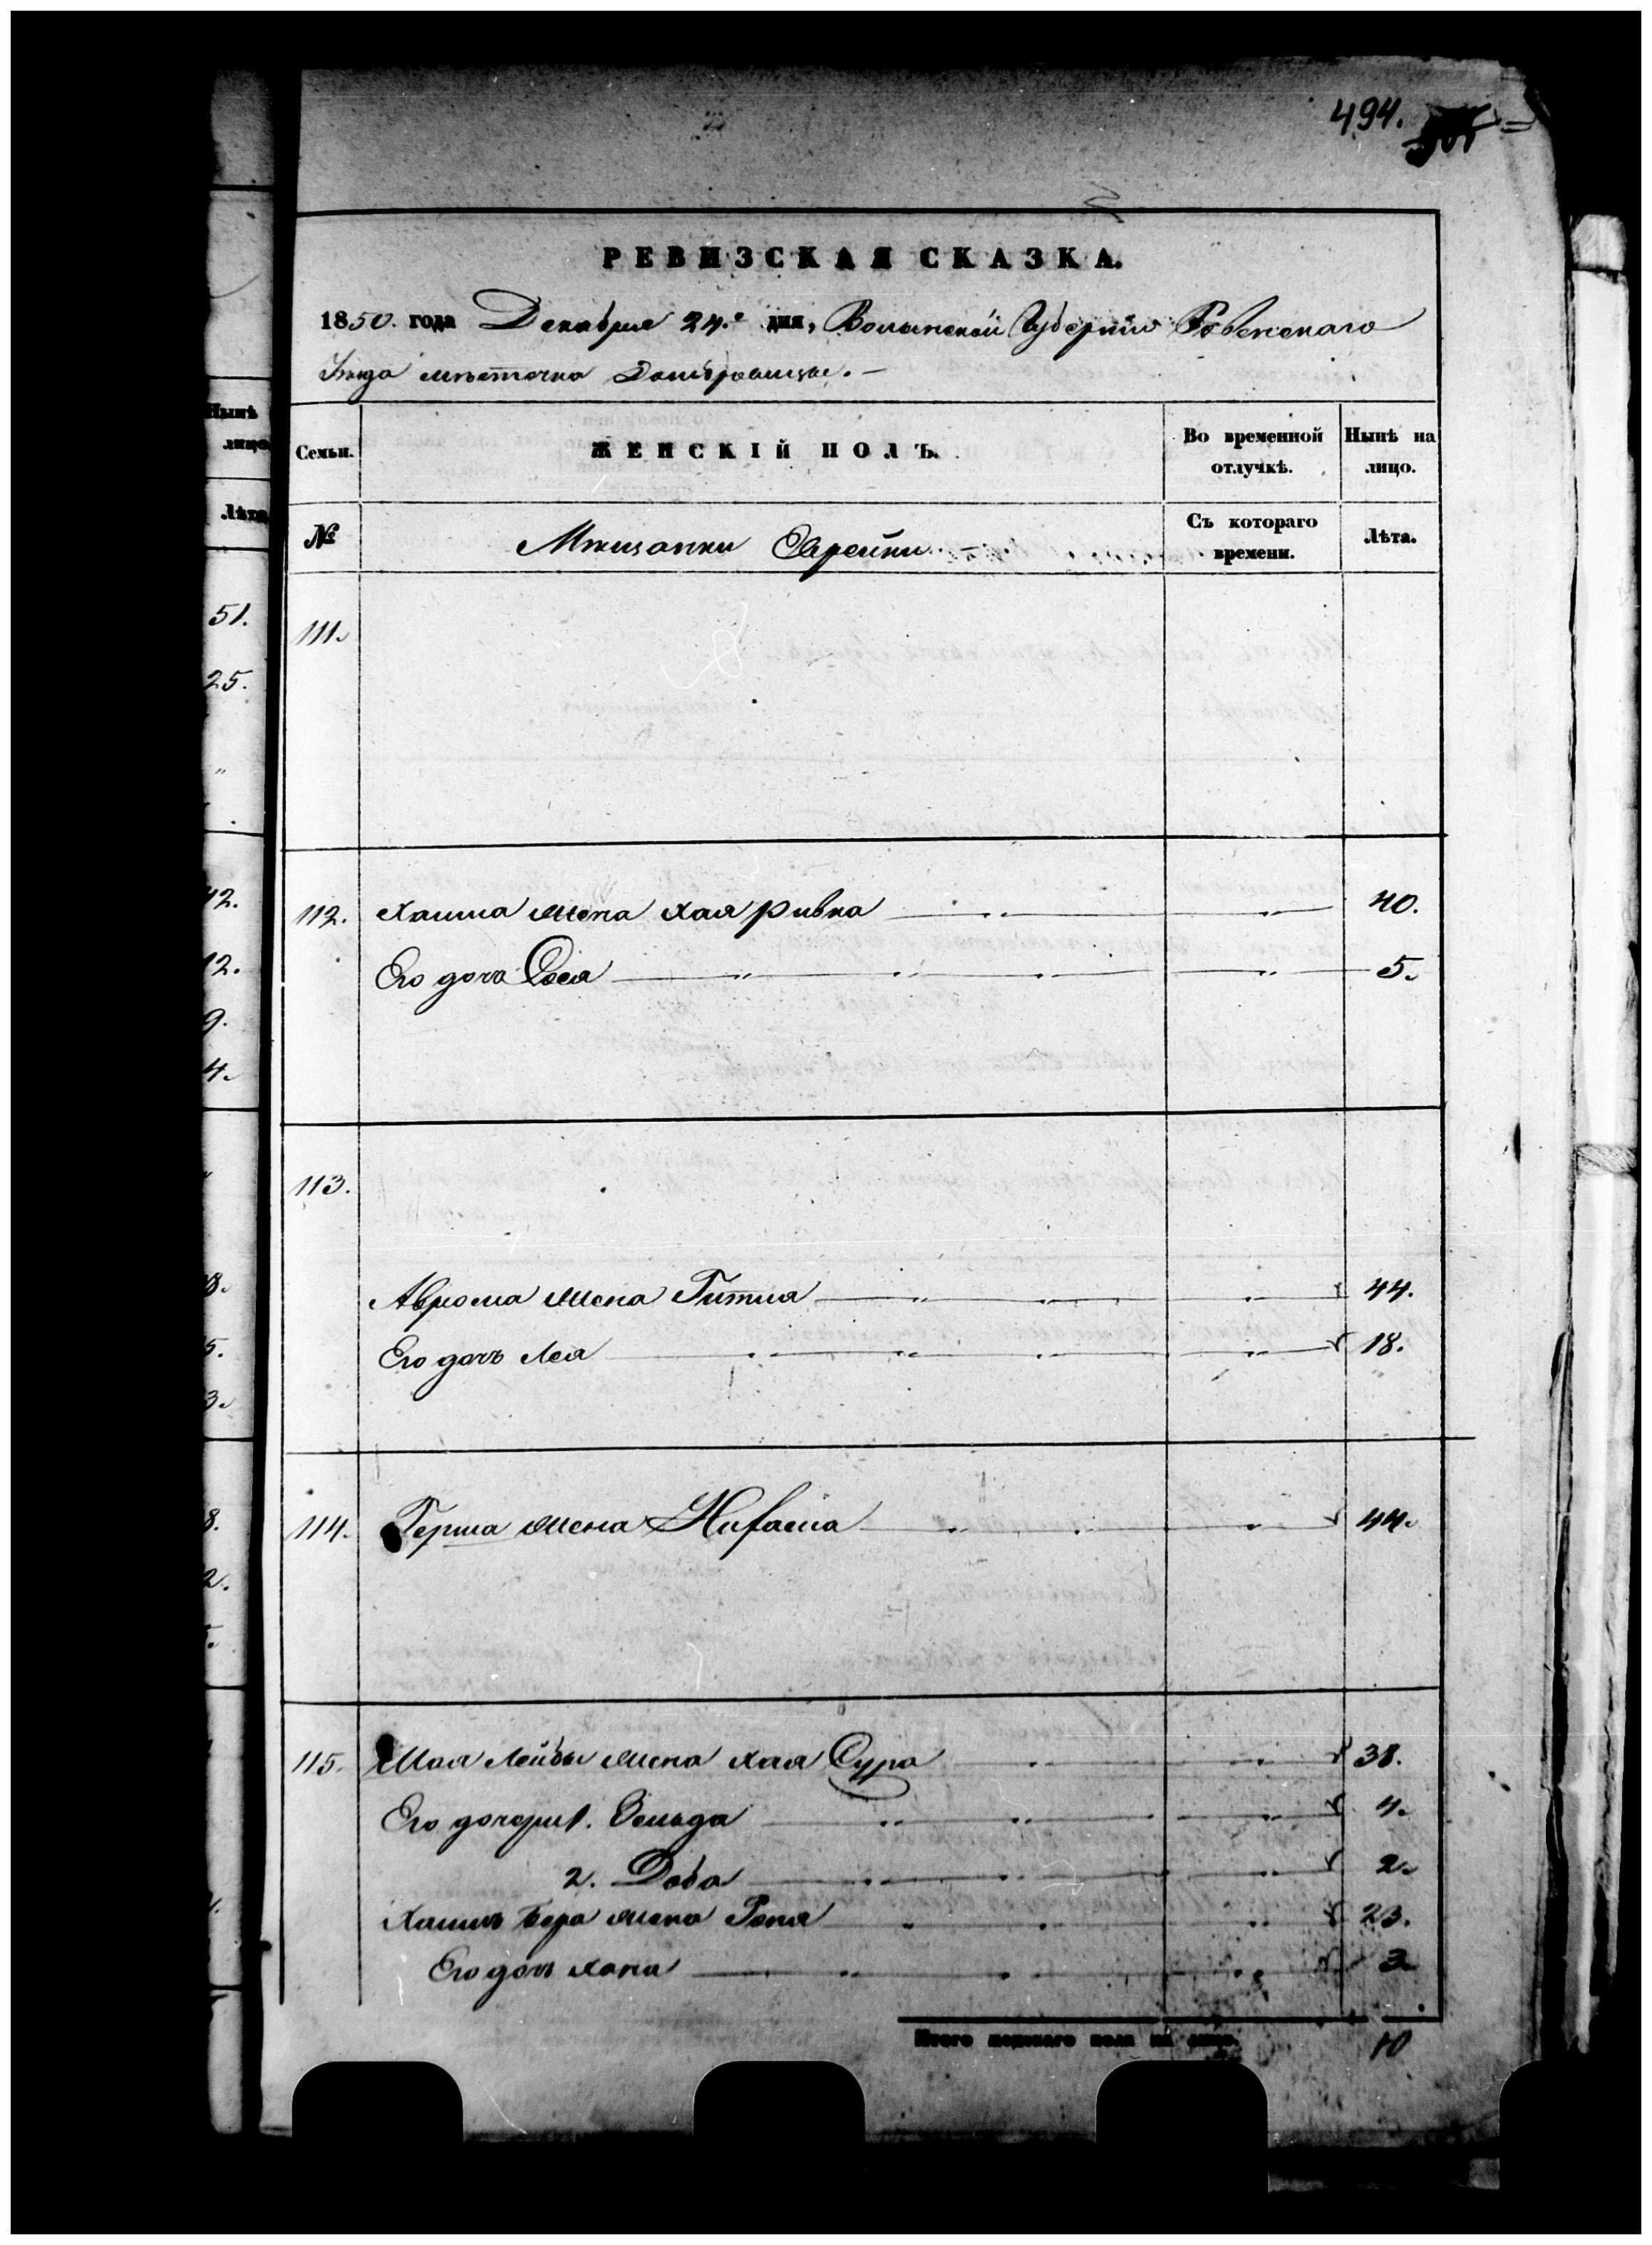 494.
РЕВИЗСКАЯ СКАЗКА.
1850. года Декабря 24.го дня, Волынской Губернии Ровенскаго
Уезда местечка Домбровицы. —
Семьи. ЖЕНСКІЙ ПОЛЪ. Во временной отлучкѣ. Нынѣ на лицо.
№ Мещанки Еврейки Съ котораго времени. Лѣта.
111.
112. Хаима жена Хая Ривка 40.
Его дочь Сося 5.
113.
Аврома жена Гитля 44.
Его дочь Лея 18.
114. Герша жена 44.
115. Шая Лейбы жена Хая Сура 38.
Его дочери 1. Зельда 4.
2. Доба 2.
Хаимъ Бера жена 23.
Его дочь Хана 3.
Итого женскаго пола на лицо. 10
Нынѣ
лицо
Лѣта
51.
25.
42.
12.
9.
4.
8.
5.
3.
8.
2.